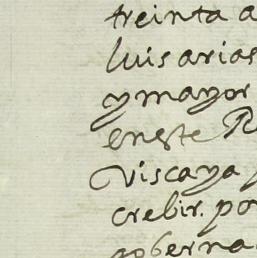 treinta a
luis arias
y mayor
eneste R
Viscaya p
crebir. po
goberna